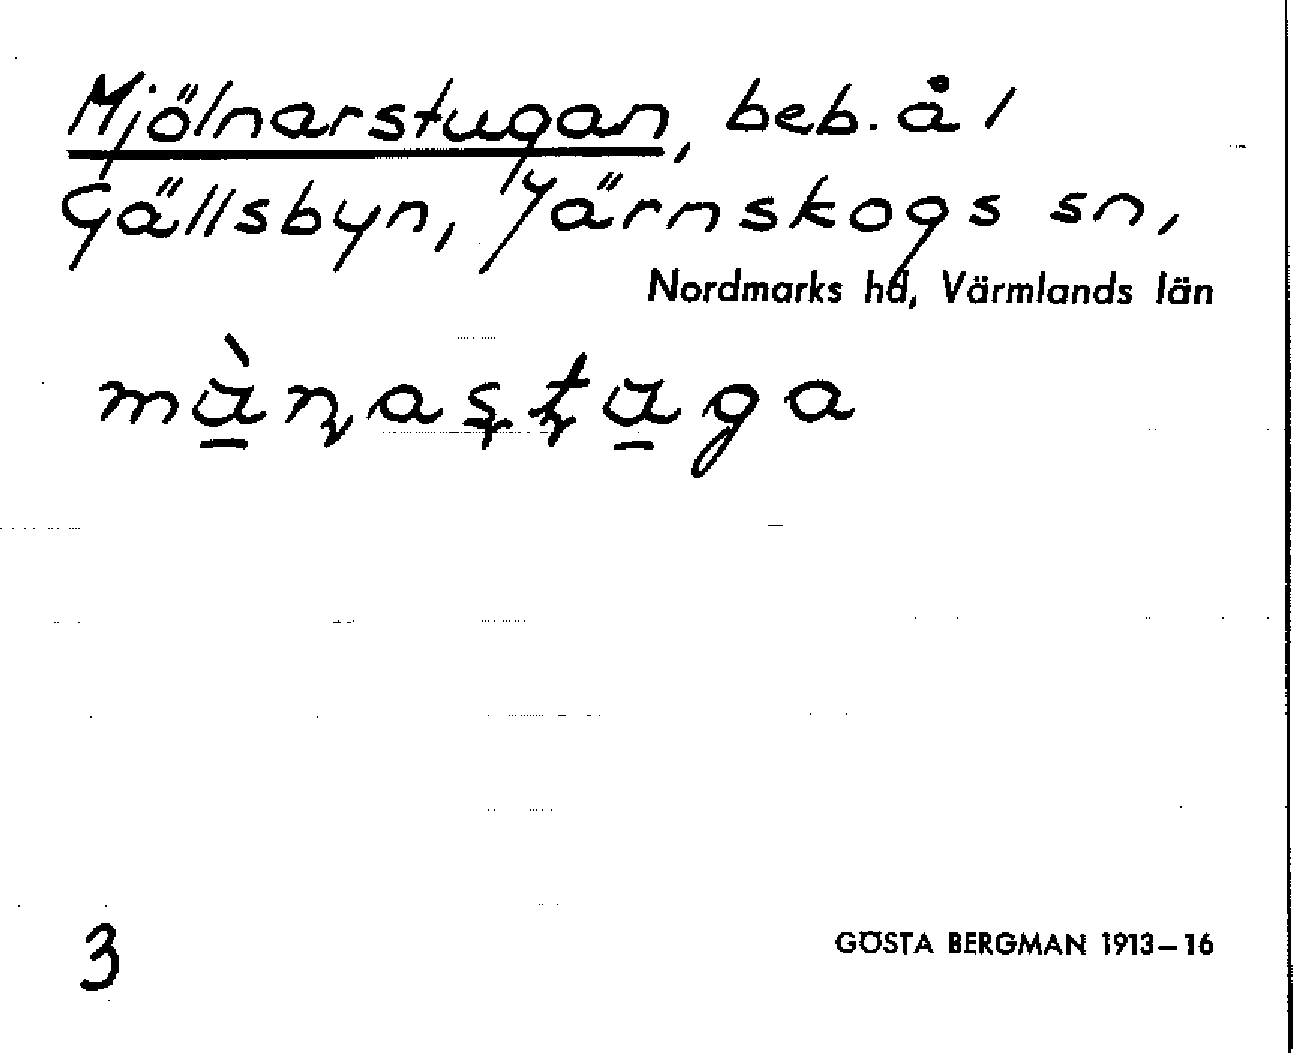 Mjölnarstugan, beb. å 1
Gällsbyn, Järnskogs sn,
Nordmarks hd, Värmlands län
3
GÖSTA BERGMAN 1913–16